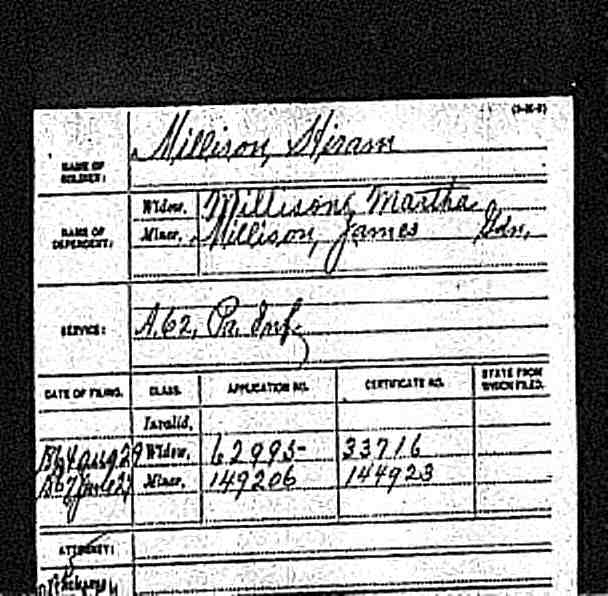 (3-H-2)
NAME OF SOLDIER: Millison, Hiram
NAME OF DEPENDENT: Widow, Millison, Martha
Minor, Millison, James Gdn.
SERVICE: A. 62, Pa. Inf.
DATE OF FILING. CLASS. APPLICATION NO. CERTIFICATE NO. STATE FROM WHICH FILED.
Invalid,
1864 Aug 29 Widow, 62995 33716
1867 Minor, 149206 144923
ATTORNEY: